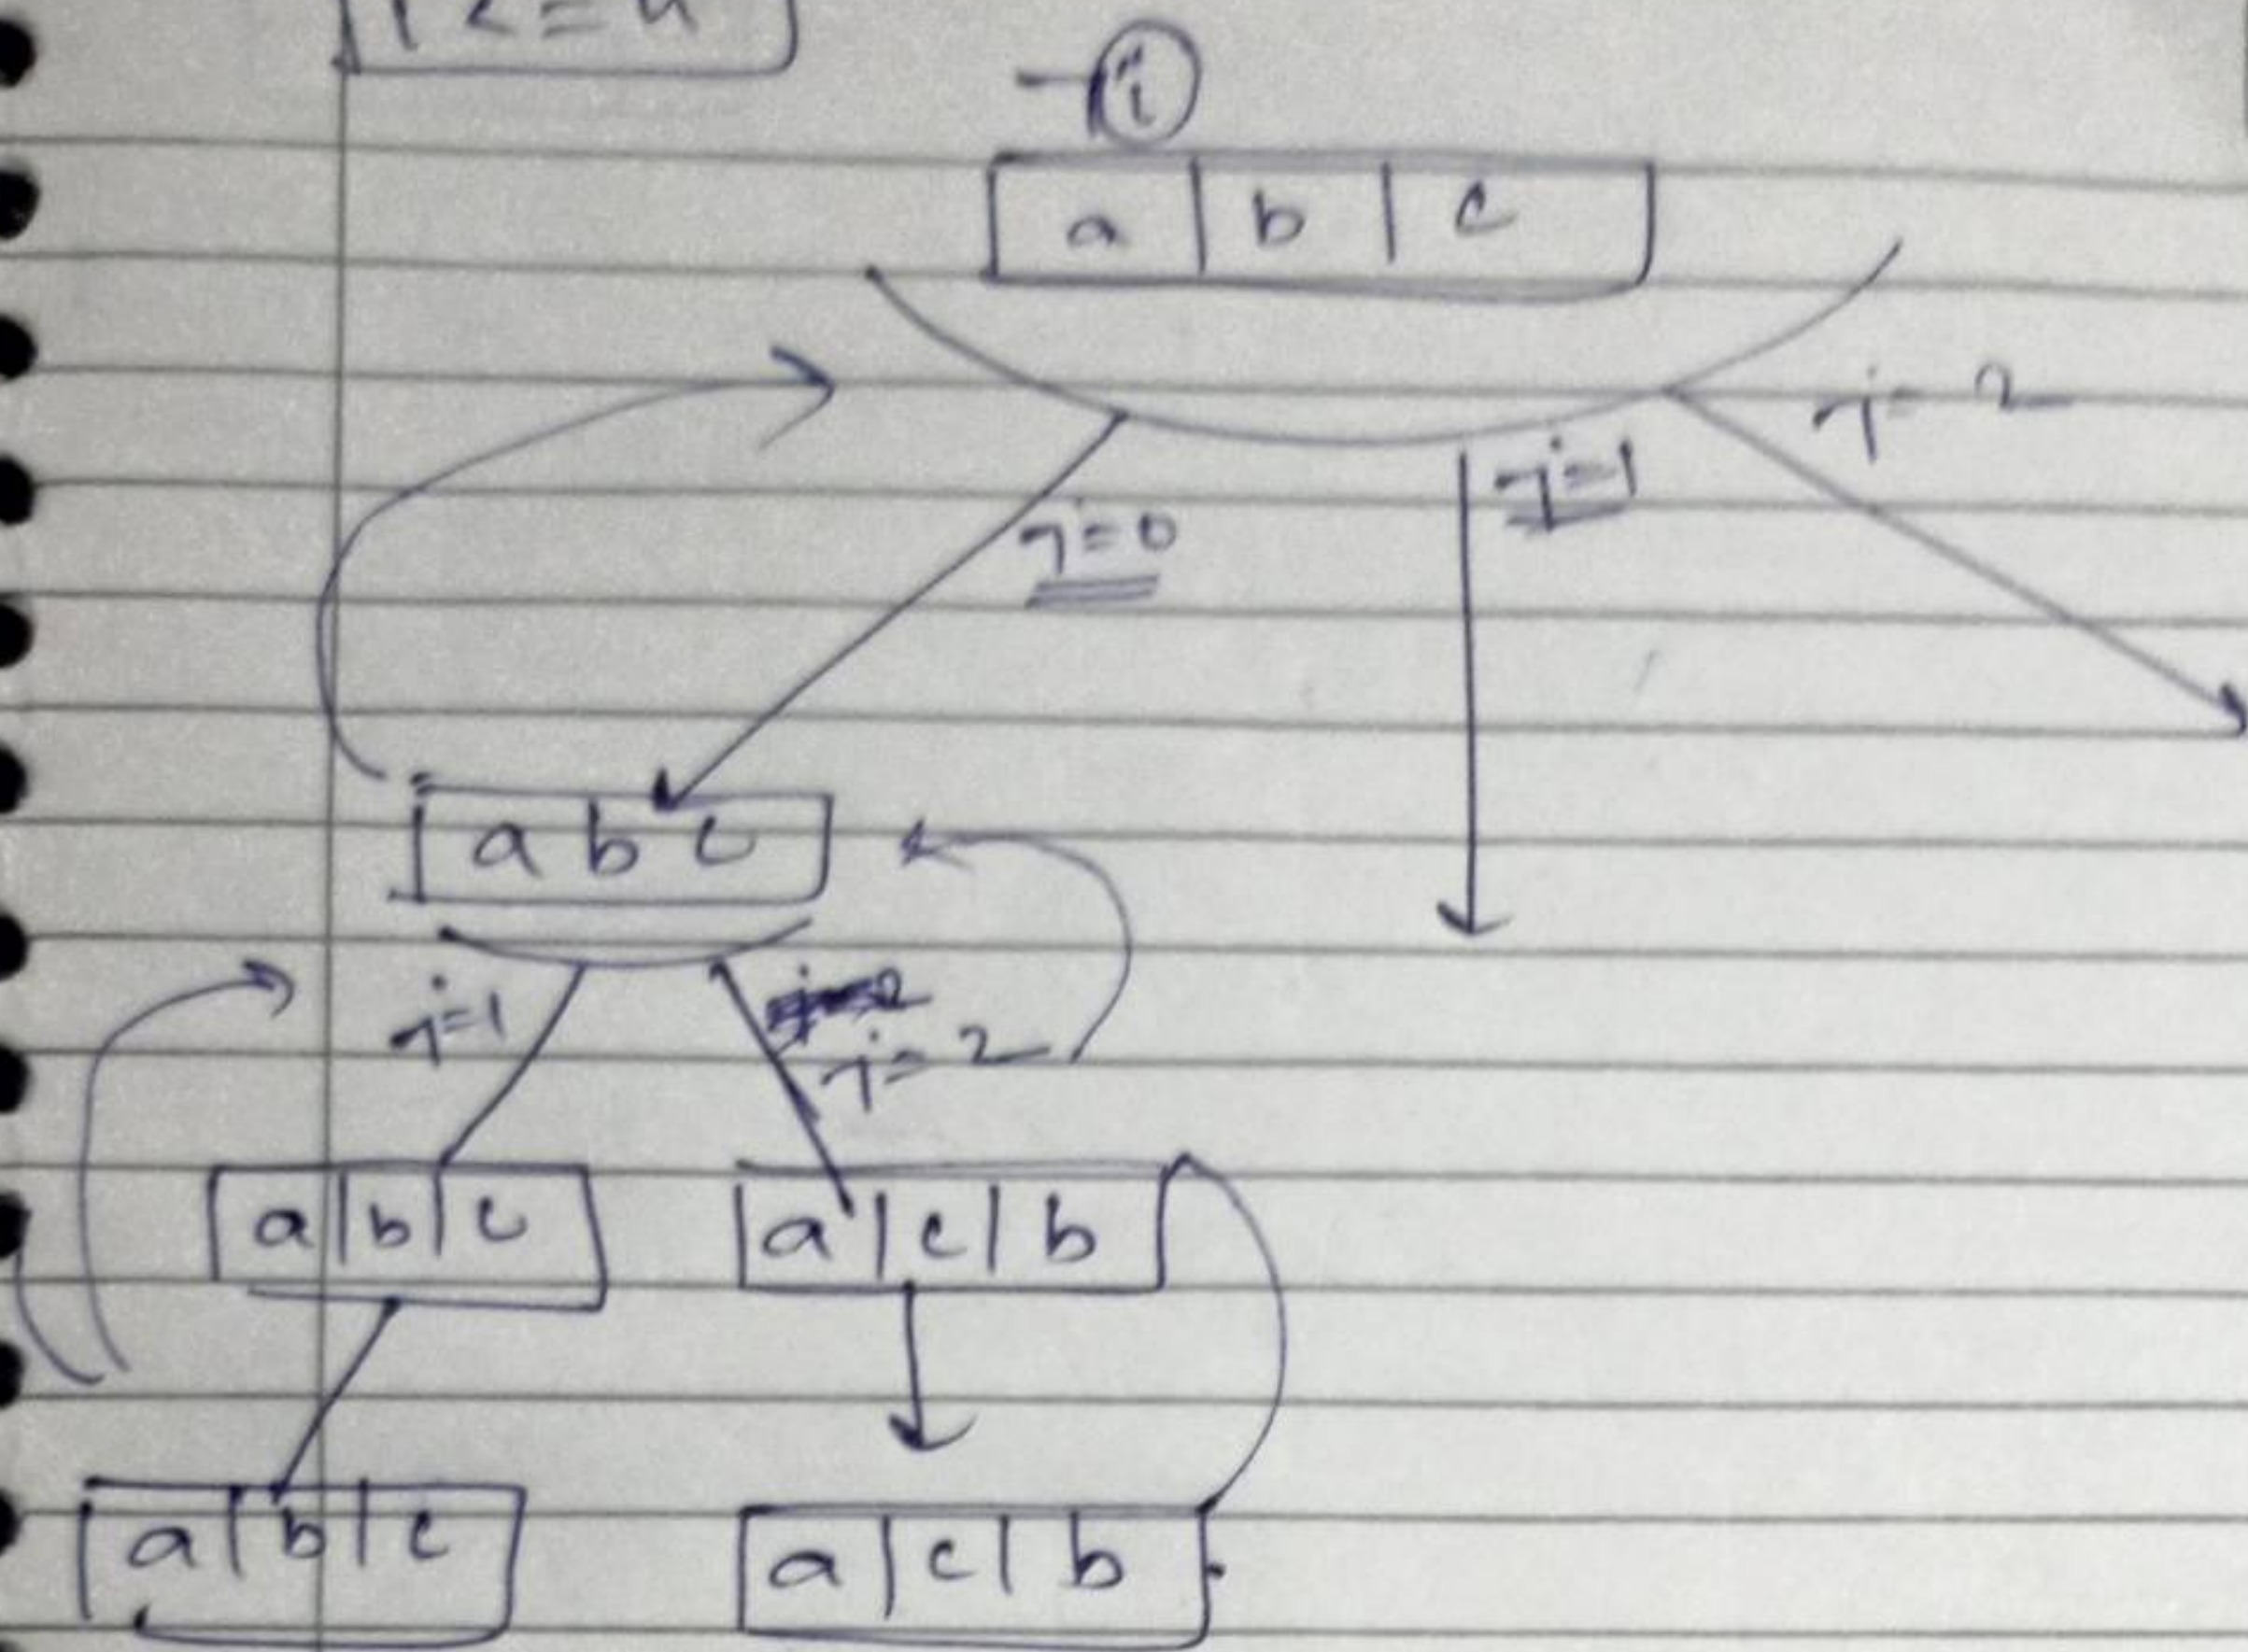 i
a | b | c
j=2
j=1
j=0
a b c
j=1
j=2
a | b | c
a | c | b
a | b | c
a | c | b